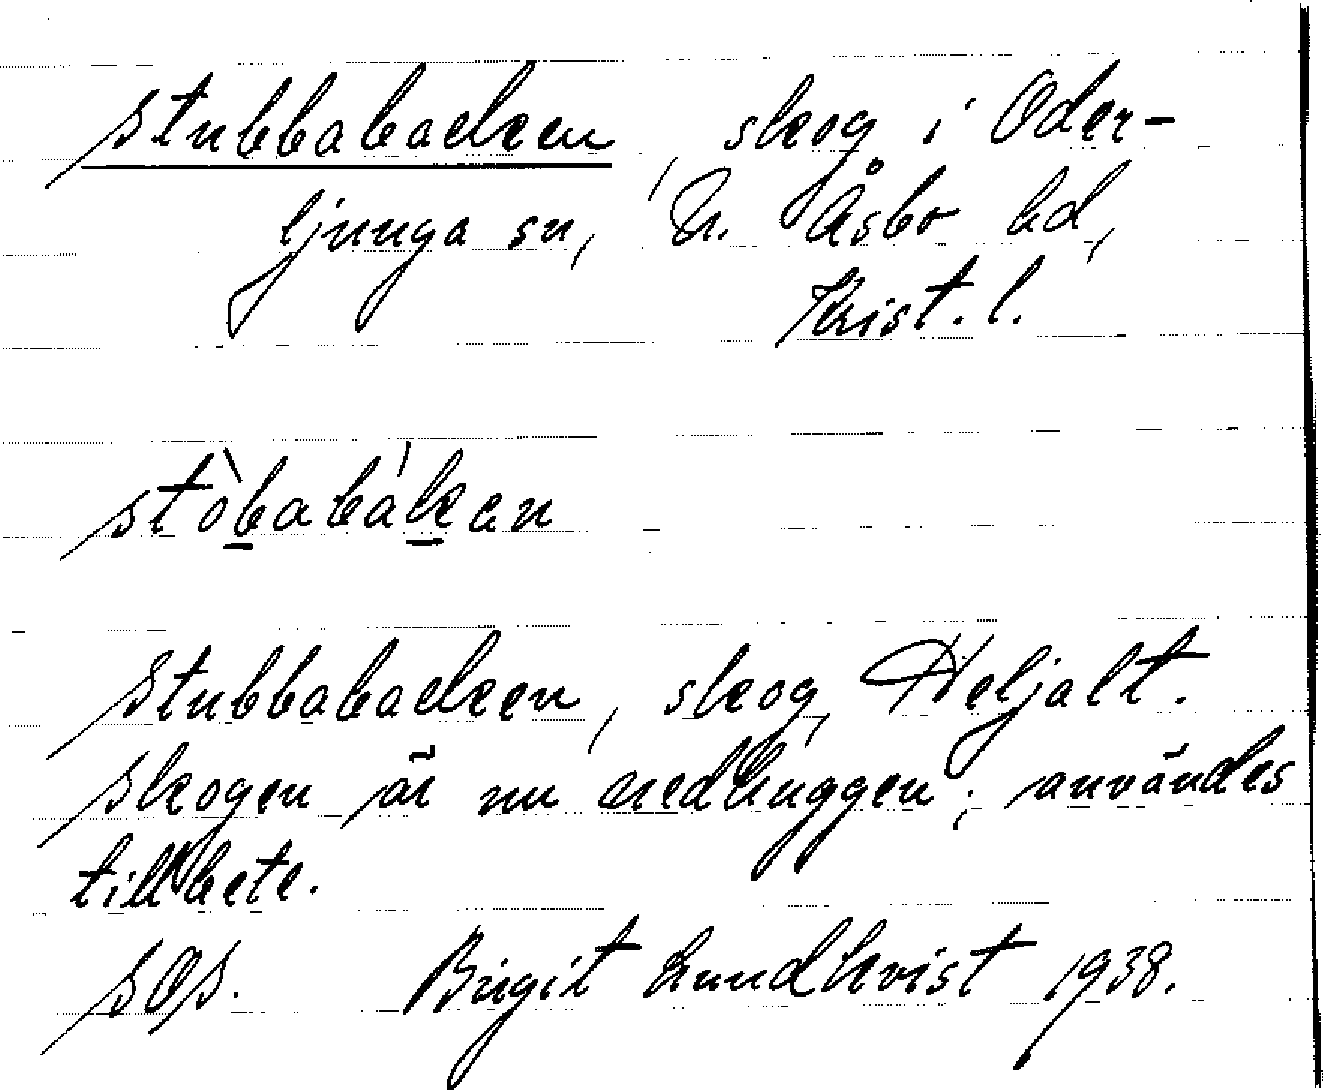 Stubbabacken, skog i Oder-
ljunga sn, N. Åsbo hd,
Krist. l.
stòbabákan
Stubbabacken, skog, Heljalt.
Skogen är nu nedhuggen; användes
till bete.
SOS. Birgit Lundkvist 1938.